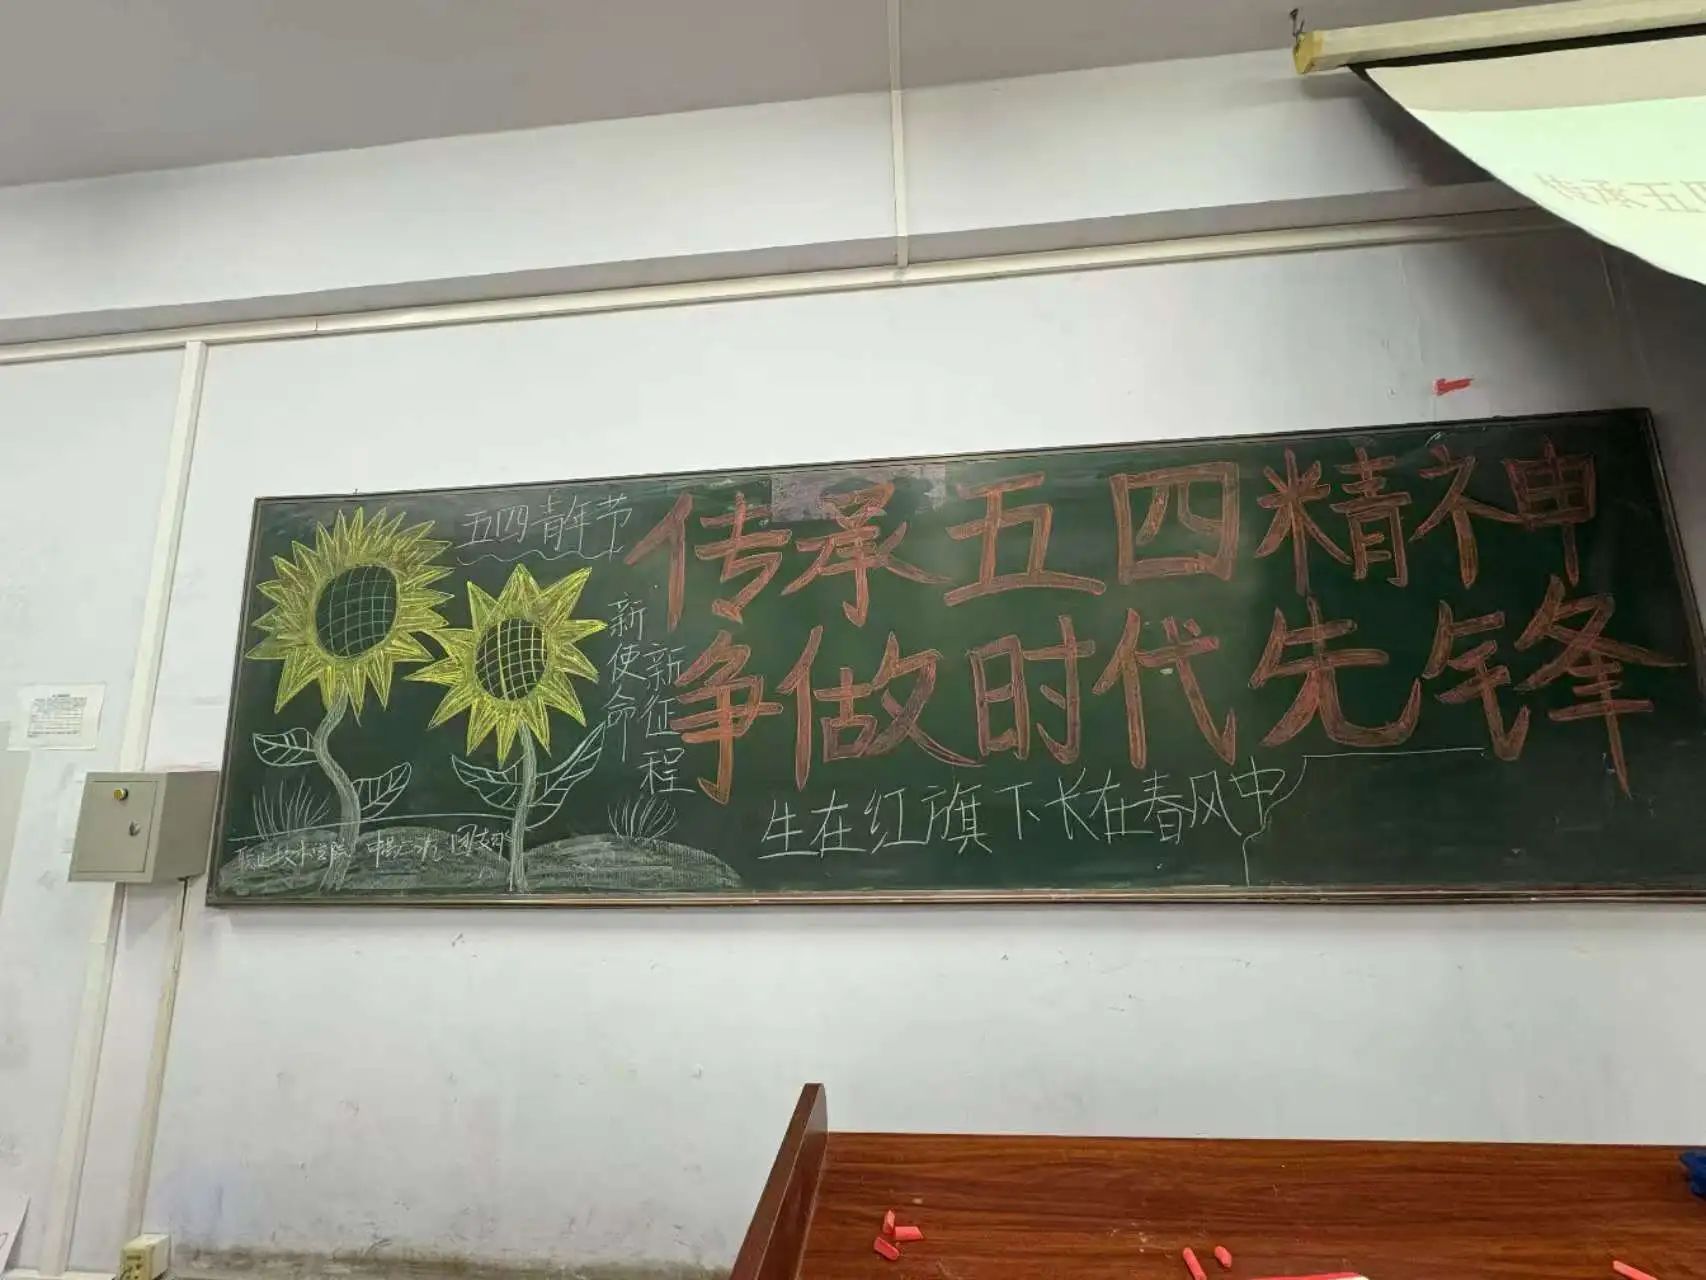 五四青年节
传承五四精神
争做时代先锋
新使命
新征程
生在红旗下长在春风中
传承五